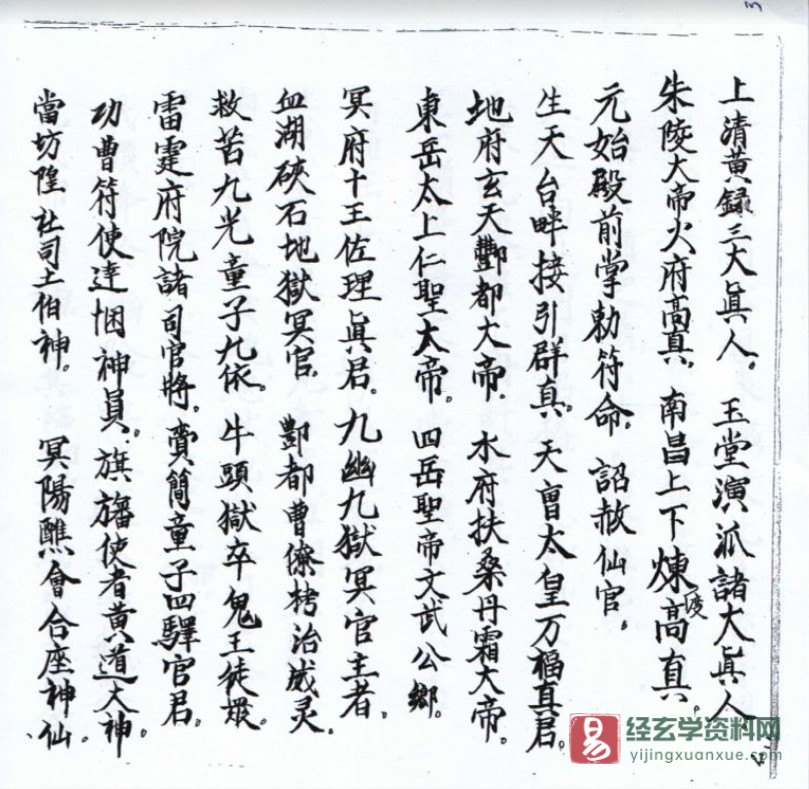 上清黃録三大眞人。玉堂演派諸大眞人
朱陵大帝火府高真。南昌上下煉度高真。
元始殿前掌勅符命。詔赦仙官。
生天台畔接引群真。天曹太皇万福真君。
地府玄天酆都大帝。水府扶桑丹霜大帝。
東岳太上仁聖大帝。四岳聖帝文武公卿。
冥府十王佐理眞君。九幽九獄冥官主者。
血湖硤石地獄冥官。酆都曹僚栲治威灵。
救苦九光童子九依。牛頭獄卒鬼王徒眾。
雷霆府院諸司官將。賫簡童子四驛官君。
功曹符使達悃神員。旗旛使者黄道大神。
當坊隍社司土伯神。冥陽醮會合座神仙。
易 经玄学资料网
yijingxuanxue.com